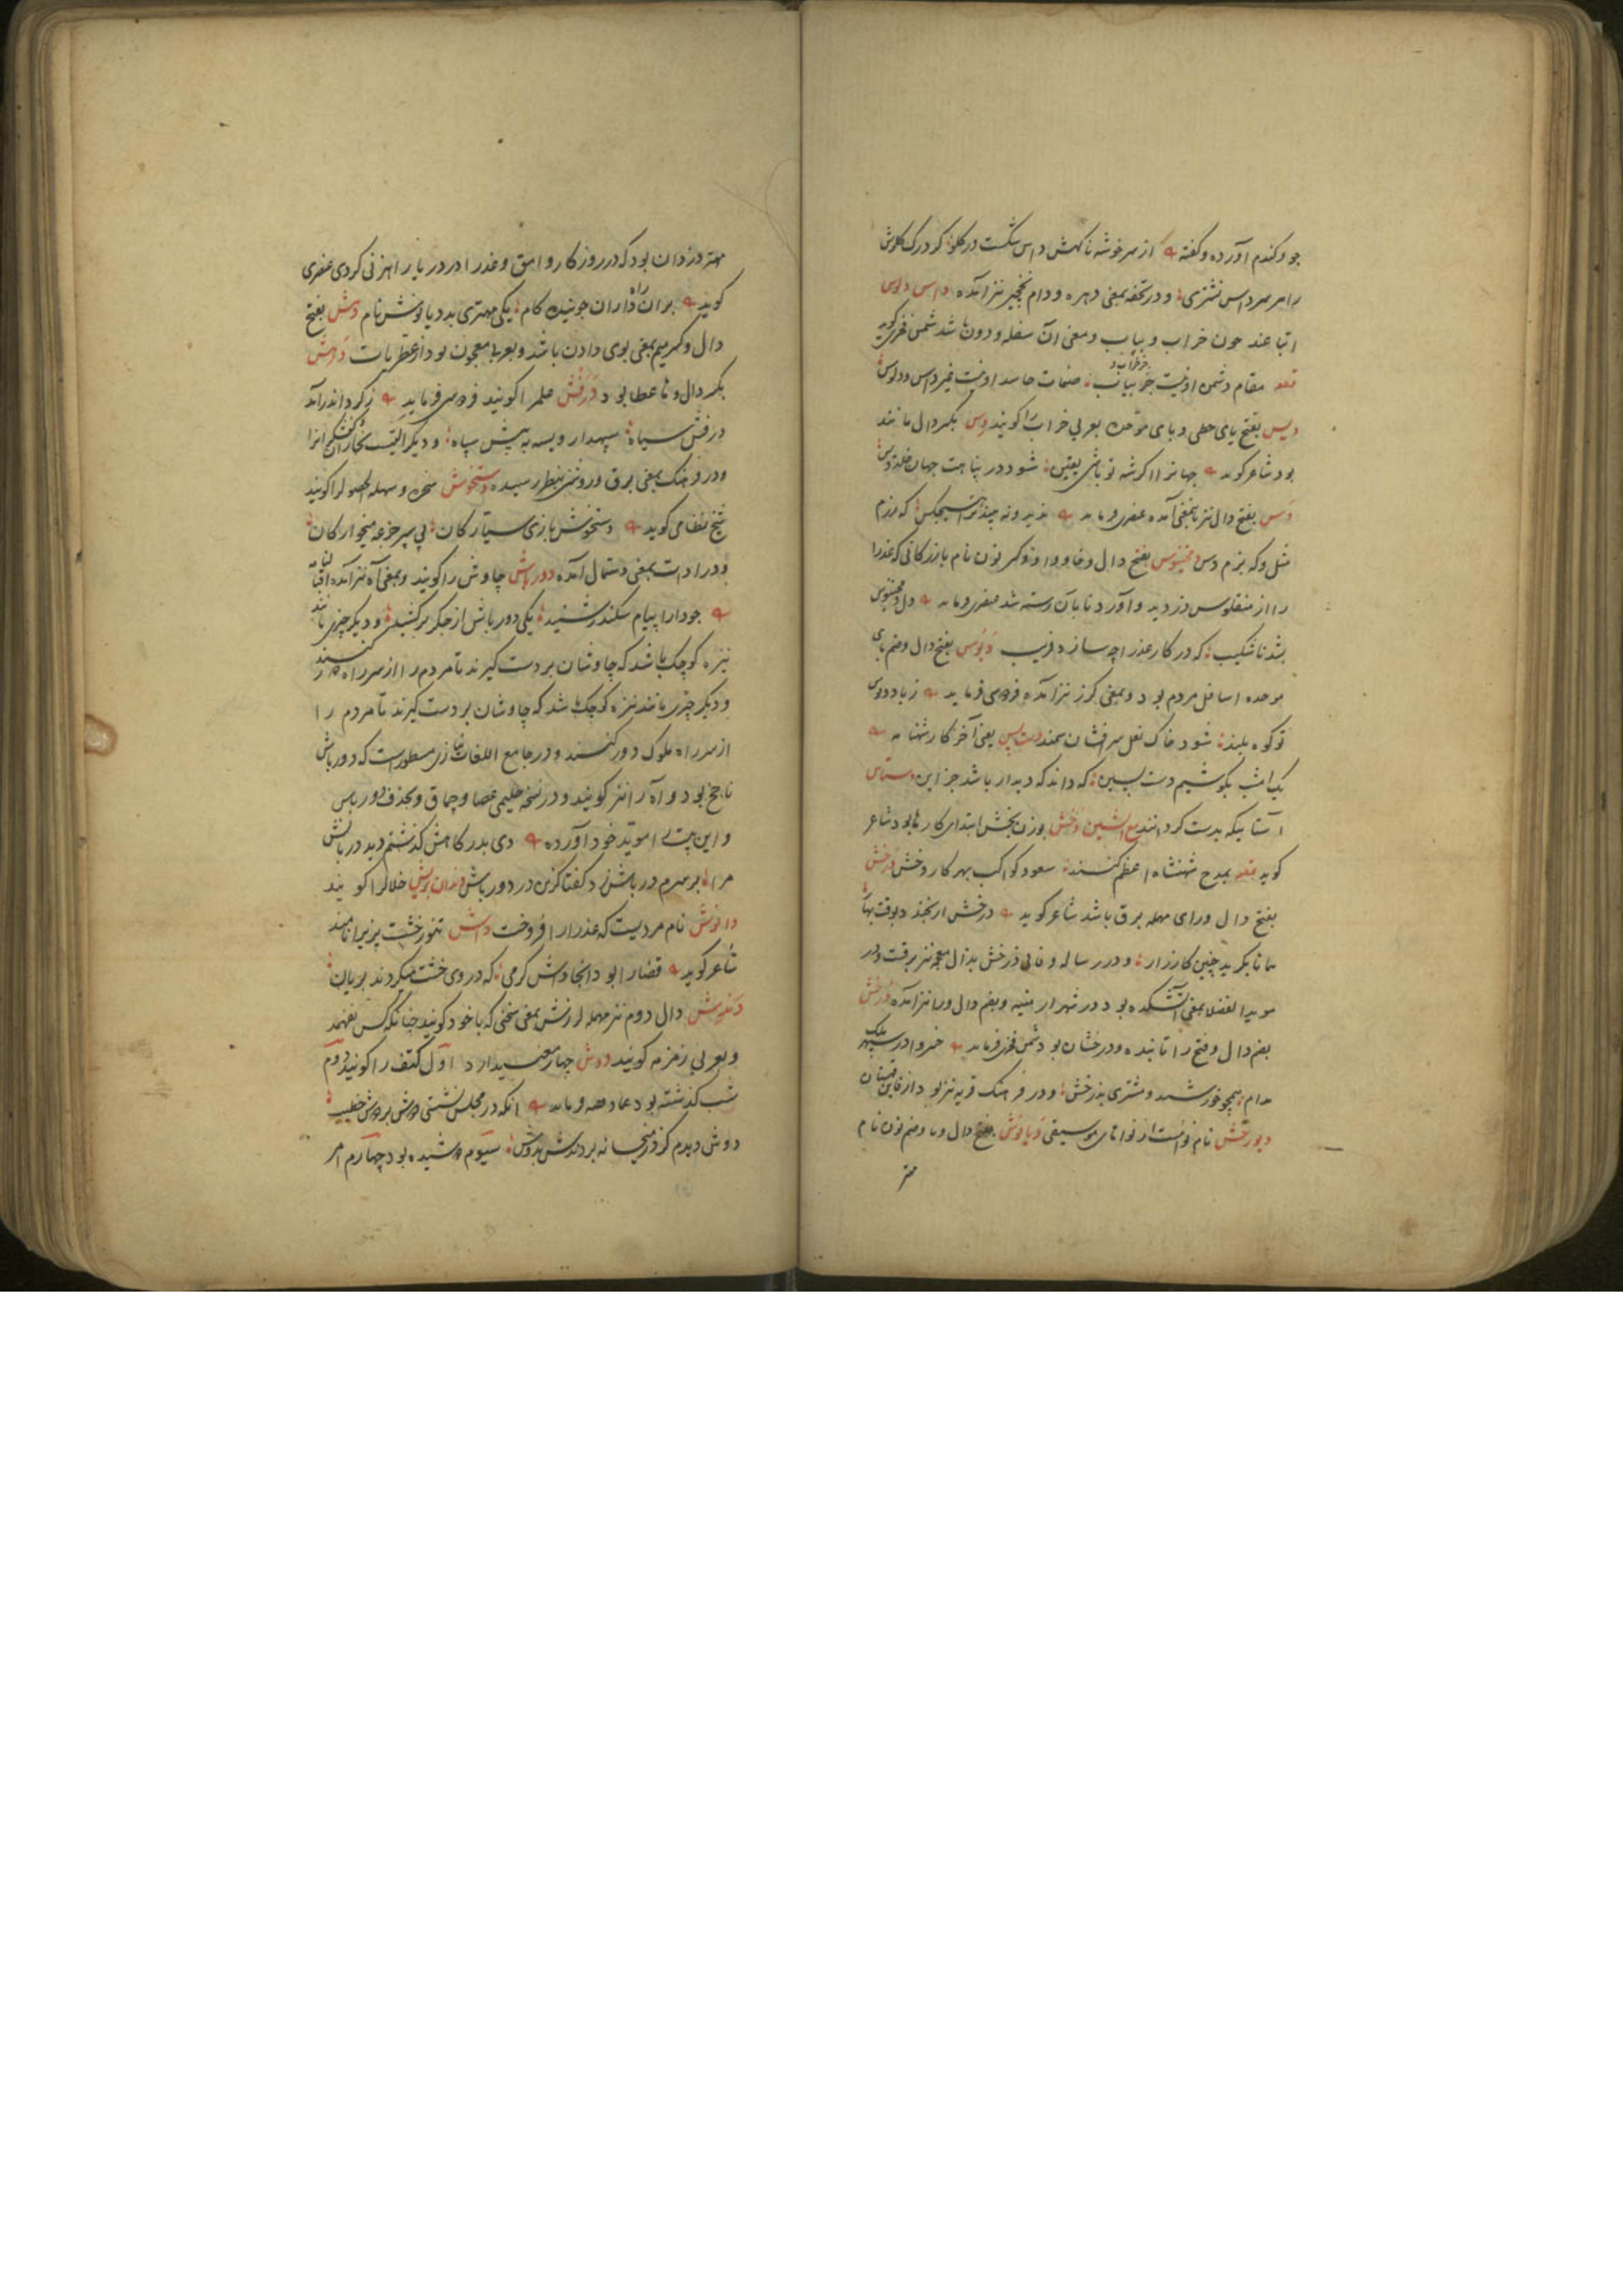 جو و کندم آورده و گفته از سر خوشه ناگهش داس شکست در گلو که در رگ گلوش
را هر سر داس نشتری و در تحفه بمعنی دهره و دام نخجیر نیز آمده داس و دلوس
اتباعند چون خراب و یباب و معنی آن سفله و دون باشد شمس فخری گوید
مقام دشمن او نیست جز خراب و یباب صفات حاسد او نیست غیر داس و دلوس
بفتح یای حطی و بای موحده بعربی خراب را گویند دس بکسر دال مانند
بود شاعر گوید شود در پناهت جهان
دس بفتح دال نیز باین معنی آمده عنصری فرماید ندید و نه بیند ترا هیچکس که رزم
مثل و که بزم دس دخینوس بفتح دال و خا و واو و کسر نون نام بازرگانی که عذرا
را از منقلوس دزدید و آورد تا بآن رسته شد عنصری فرماید دل دخینوس
بشد ناشکیب که در کار عذرا چه سازد فریب دبوس بفتح دال و ضم بای
موحده اسافل مردم بود و بمعنی گرز نیز آمده فردوسی فرماید ز باد دبوس
تو کوه بلند شود خاک نعل سرافشان سمند دست پسین یعنی آخر کار شهنامه
یک امشب بکوشیم دست پسین که داند که دیدار باشد جز این دستاس
آسیا نیکه بدست گردانند مع الشین دخش بوزن بخش ابتدای کارها بود شاعر
گوید بمدح شهنشاه اعظم کنند سعود کواکب بهر کار دخش درخش
بفتح دال و رای مهمله برق باشد شاعر گوید درخش ار نخندد بوقت بهار
همانا نگرید چنین کارزار و در رساله وفائی ذرخش بذال معجمه نیز برقست و در
موید الفضلا بمعنی آتشکده بود در شهر ارمنیه و بضم دال و را نیز آمده درخش
بضم دال و فتح را تابنده و درخشان بود شمس فخری فرماید خسروا در سپهر ملک
مدام همچو خورشید و مشتری بدرخش و در فرهنگ قریه نیز بود از قاین قهستان
دیورخش نام نوائیست از نواهای موسیقی دیانوش بفتح دال و یا و ضم نون نام
مهتر
مهتر دزدان بود که در روزگار وامق و عذرا در دریا راهزنی کردی عنصری
گوید بر آن راه داران جوینده کام یکی مهتری بد دیانوش نام دمش بفتح
دال و کسر میم بمعنی بوی دادن باشد و بعربی معجون بود از عطریات دهش
بکسر دال و ها عطا بود درفش علم را گویند فردوسی فرماید ز گرد اندر آمد
درفش سیاه سپهدار ویسه به پیش سپاه و دیگر آلتیست نجاران کفشگر انرا
و در فرهنگ بمعنی برق و روشنی بنظر رسیده دستخوش سخره و سهله الحصول را گویند
شیخ نظامی گوید دستخوش بازی سیارگان بی سپر خرقه میخوارگان
و در ادات بمعنی دستمال آمده دورباش چاوش را گویند و بمعنی آه نیز آمده
چو دارا پیام سکندر شنید یکی دورباش از جگر برکشید و دیگر چیزی مانند
نیزه کوچک باشد که چاوشان بر دست گیرند تا مردم را از سر راه دور کنند
و دیگر چیزی مانند نیزه کوچک باشد که چاوشان بر دست گیرند تا مردم را
از سر راه ملوک دور کنند و در جامع اللغات نیازی مسطور است که دورباش
ناجخ بود و آه را نیز گویند و در نسخه حلیمی عصا و چماق و بحذف
و این بیت را موید خود آورده دی بدرگاهش گذشتم دید درباش
مرا بر سرم درباش زد گفتا کزین در دورباش دندان پریش خلال را گویند
دانوش نام مردیست که عذرا را فروخت داش تنور خشت پزیرا نامند
شاعر گوید قضا را بود آنجا داش گرمی که در وی خشت میکردند بریان
دندش دال دوم نیز مهمله لرزش بمعنی سخنی که با خود گویند چنانکه کس نفهمد
و بعربی زمزمه گویند دوش چهار معنی دارد اول کتف را گویند دوم
شب گذشته بود عماد فقیه فرماید آنکه در مجلس نشستی دوش بر دوش خطیب
دوش دیدم کز در میخانه بردندش بدوش سیوم دوشیده بود چهارم امر